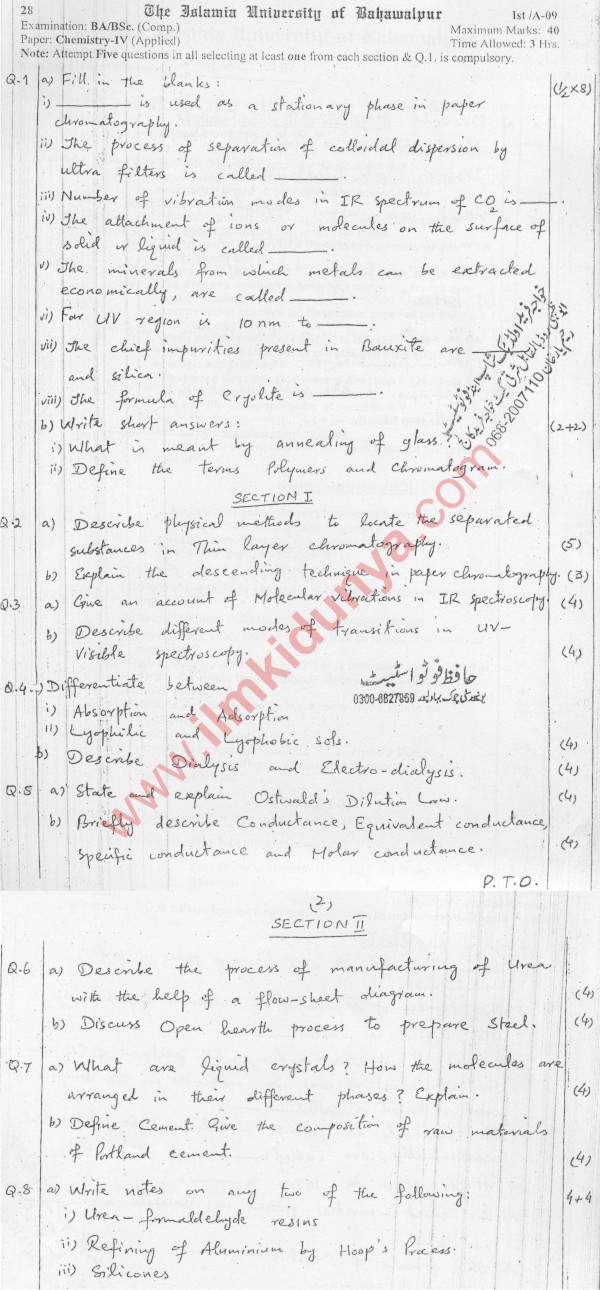 28
The Islamia University of Bahawalpur
Ist /A-09
Examination: BA/BSc. (Comp.)
Maximum Marks: 40
Paper: Chemistry-IV (Applied)
Time Allowed: 3 Hrs.
Note: Attempt Five questions in all selecting at least one from each section & Q.1. is compulsory.
Q.1 a) Fill in the blanks: (½ x 8)
i) ________ is used as a stationary phase in paper
chromatography.
ii) The process of separation of colloidal dispersion by
ultra filters is called ______.
iii) Number of vibration modes in IR spectrum of CO2 is ____.
iv) The attachment of ions or molecules on the surface of
solid or liquid is called ______.
v) The minerals from which metals can be extracted
economically, are called ______.
vi) Far UV region is 10 nm to _____.
vii) The chief impurities present in Bauxite are
and silica.
viii) The formula of Cryolite is ______.
b) Write short answers: (2+2)
i) What is meant by annealing of glass.
ii) Define the terms Polymers and Chromatogram.
068-2007110
SECTION I
Q.2 a) Describe physical methods to locate the separated
substances in Thin layer chromatography. (5)
b) Explain the descending technique in paper chromatography. (3)
Q.3 a) Give an account of Molecular vibrations in IR spectroscopy. (4)
b) Describe different modes of transitions in UV-
visible spectroscopy. (4)
حافظ فوٹو اسٹیٹ
0300-6827869
Q.4. a) Differentiate between
i) Absorption and Adsorption
ii) Lyophilic and Lyophobic sols. (4)
b) Describe Dialysis and Electro-dialysis. (4)
Q.5 a) State and explain Ostwald's Dilution Law. (4)
b) Briefly describe Conductance, Equivalent conductance,
specific conductance and Molar conductance. (4)
P.T.O.
www.ilmkidunya.com
(2)
SECTION II
Q.6 a) Describe the process of manufacturing of Urea
with the help of a flow-sheet diagram. (4)
b) Discuss Open hearth process to prepare steel. (4)
Q.7 a) What are liquid crystals? How the molecules are
arranged in their different phases? Explain. (4)
b) Define Cement. Give the composition of raw materials
of Portland cement. (4)
Q.8 a) Write notes on any two of the following: 4+4
i) Urea-formaldehyde resins
ii) Refining of Aluminium by Hoop's Process.
iii) Silicones